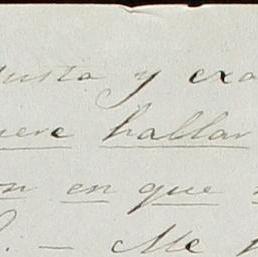 justa y exa
iere hallar
on en que
. — Me